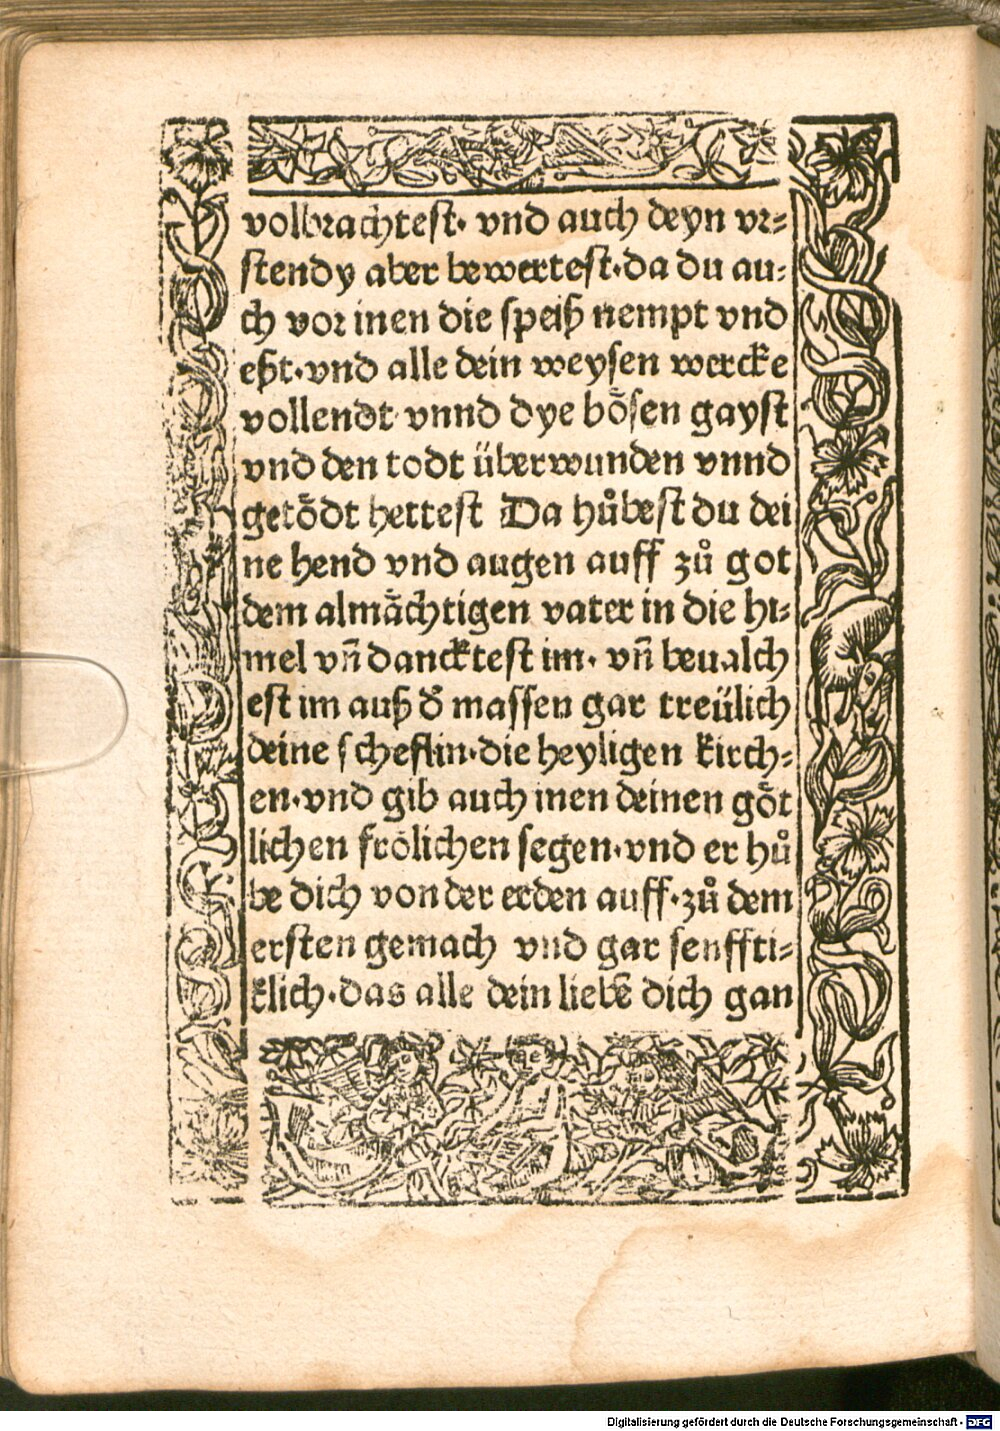 volbrachtest· vnd auch deyn vr⸗
stendy aber bewertest·da du au⸗
ch vor inen die speiß nempt vnd
eßt·vnd alle dein weysen wercke
vollendt vnnd dye boͤsen gayst
vnd den todt überwunden vnnd
getoͤdt hettest Da huͦbest du dei
ne hend vnd augen auff zuͦ got
dem almaͤchtigen vater in die hi⸗
mel vn̄ dancktest im· vn̄ beualch
est im auß d̕ massen gar treülich
deine scheflin·die heyligen kirch⸗
en·vnd gib auch inen deinen goͤt
lichen froͤlichen segen·vnd er huͦ
be dich von der erden auff·zuͦ dem
ersten gemach vnd gar senffti⸗
klich·das alle dein liebē dich gan
Digitalisierung gefördert durch die Deutsche Forschungsgemeinschaft - DFG